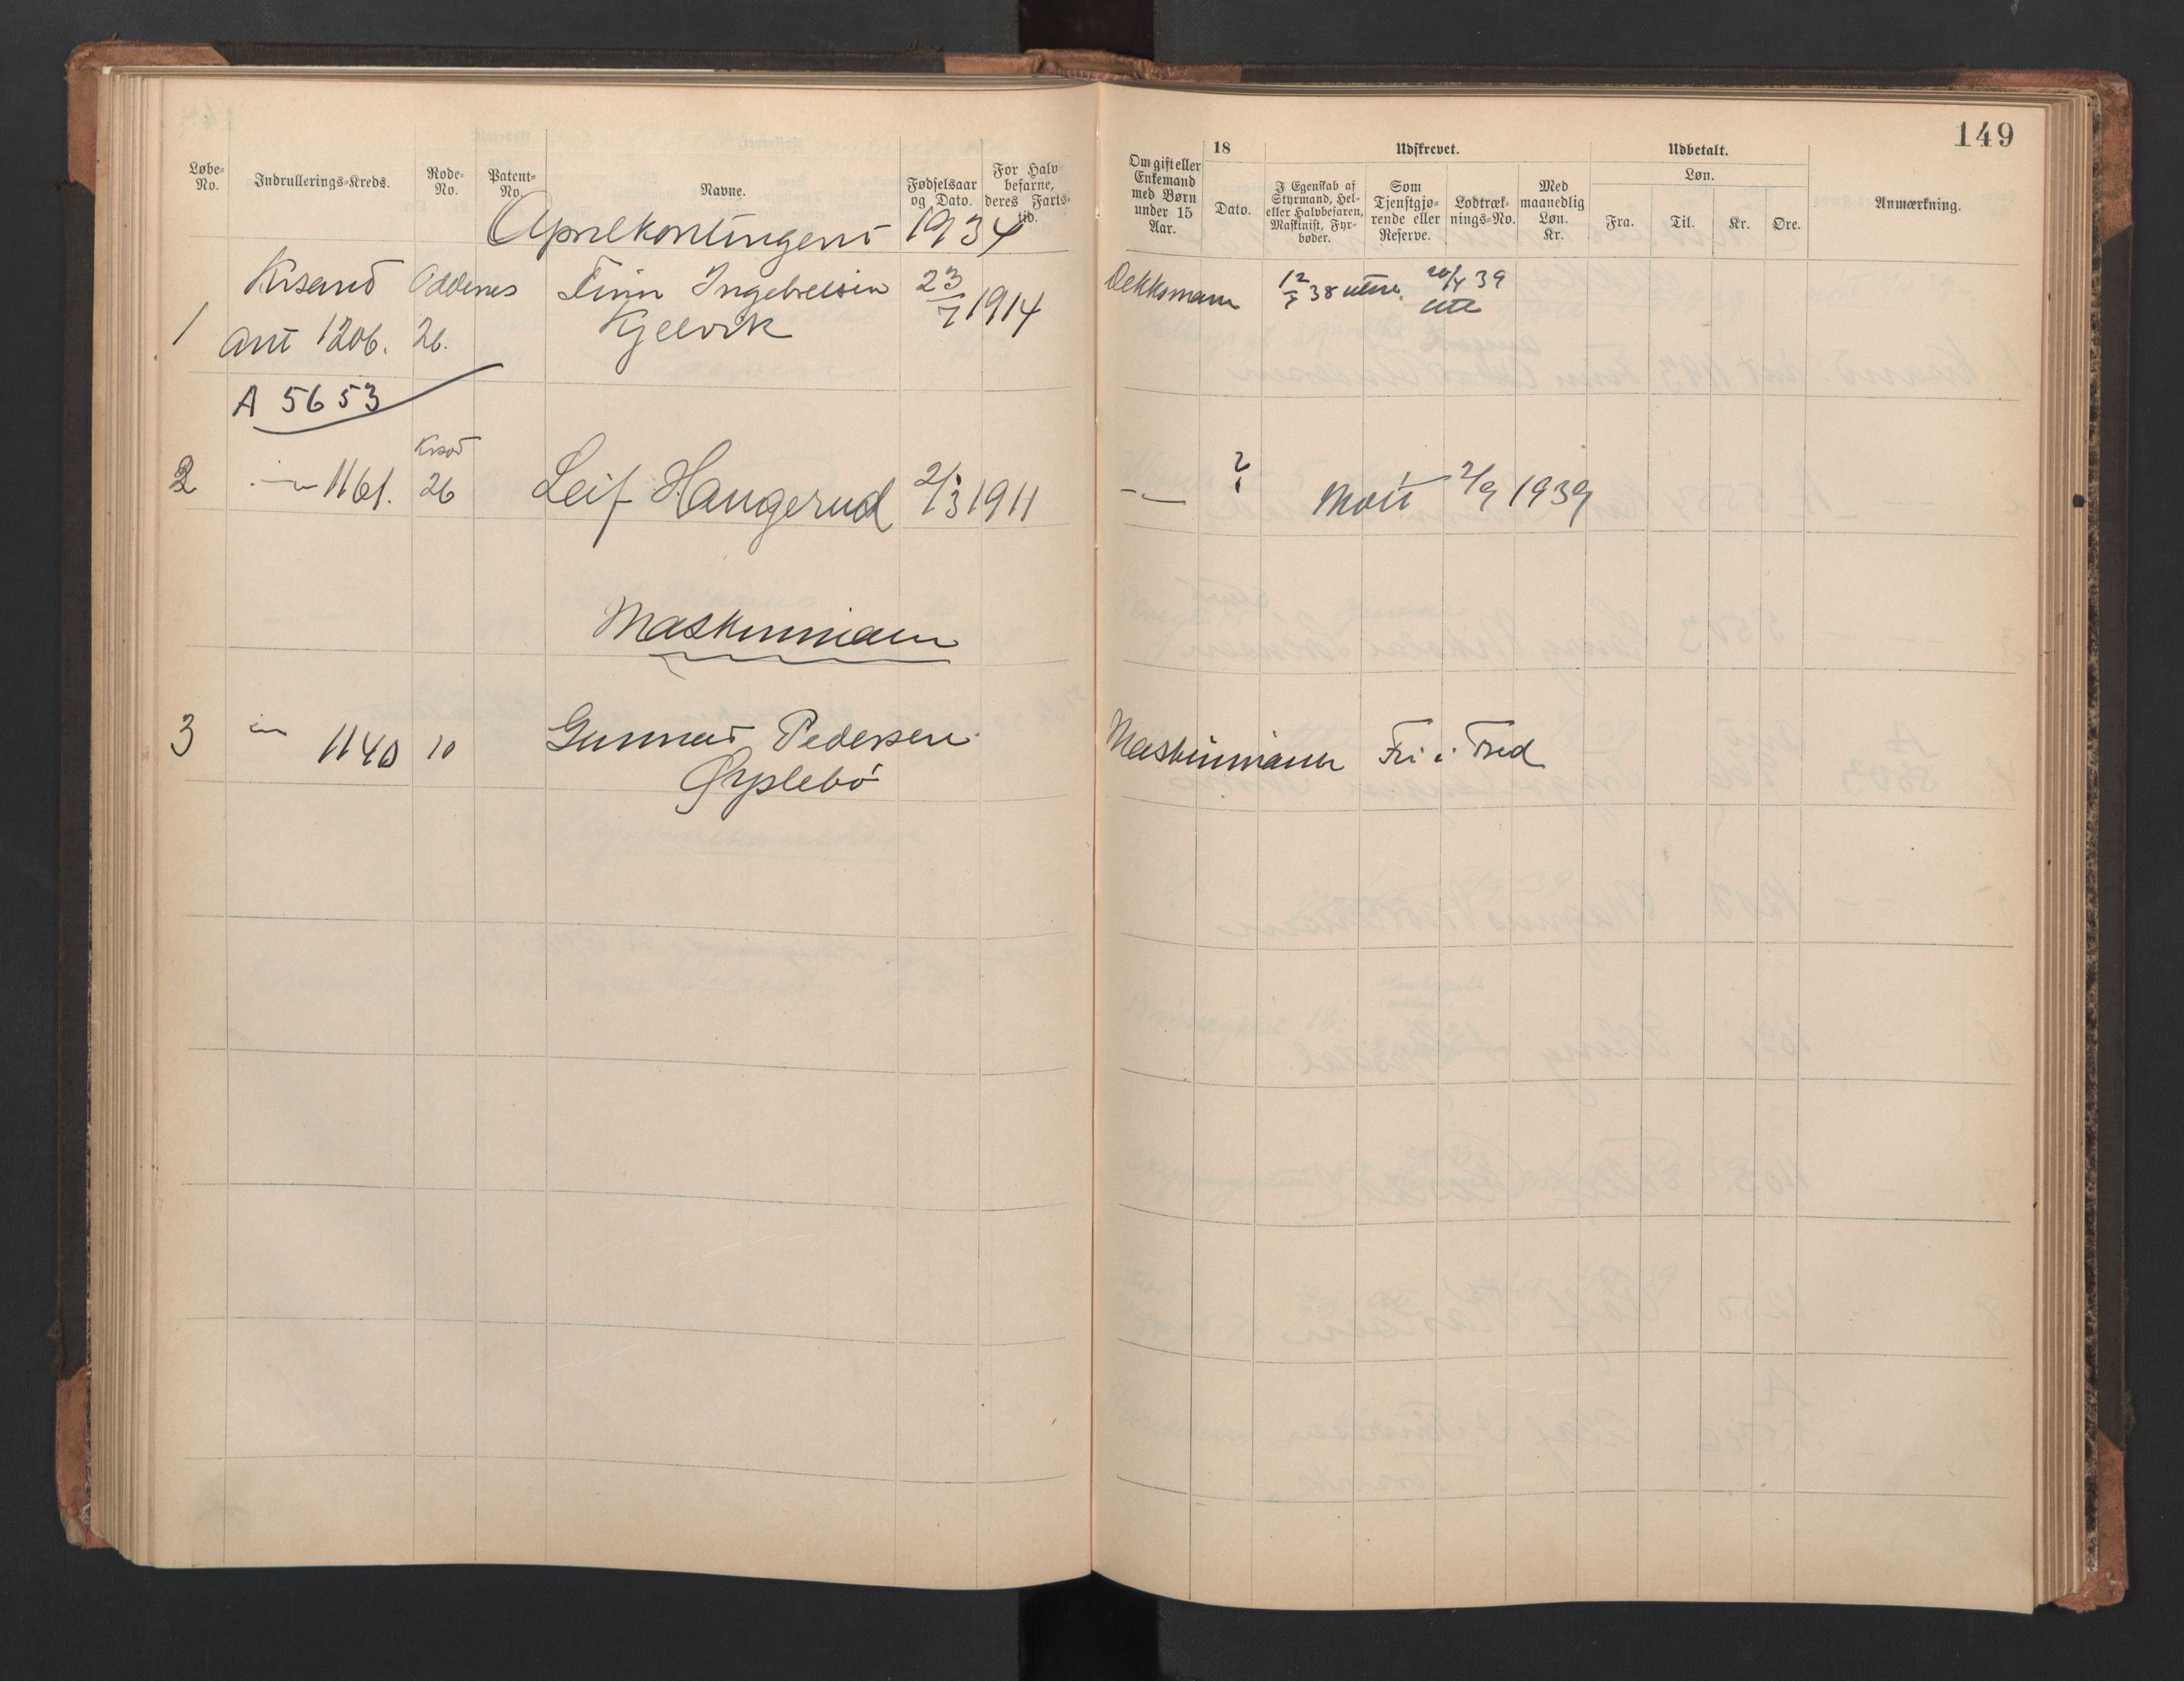 149
Løbe-No. Indrullerings-Kreds. Rode-No. Patent-No. Navne. Fødselsaar og Dato. For Halvbefarne, deres Fartstid.
Om gift eller Enkemand med Børn under 15 Aar. 18 Dato. Udskrevet. I Egenskab af Styrmand, Hel- eller Halvbefaren, Maskinist, Fyrbøder. Som Tjenstgjørende eller Reserve. Lodtræknings-No. Med maanedlig Løn. Kr. Udbetalt. Løn. Fra. Til. Kr. Øre. Anmærkning.
Aprilkontingent 1934
Krsand Oddenes Finn Ingebretsen 23/7 1914 Dekksmann 12/5 38 utene. 20/4 39
1 Ant 1206. 26. Kjelvik ute
A 5653
Krsd
2 -"- 1161. 26 Leif Haugerud 2/3 1911 -"- ? Mött 2/9 1939
Maskinmann
3 -"- 1140 10 Gunnar Pedersen Maskinmann Fri i Fred
Øyslebö